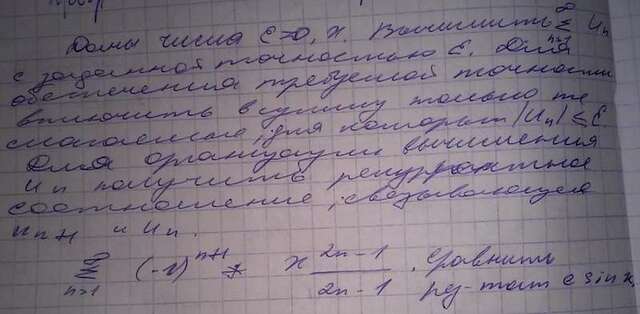 Даны числа ε>0, x. Вычислить ∞ Σ n=1 Un
с заданной точностью ε. Для
обеспечения требуемой точности
включить в сумму только те
слагаемые, для которых |Un| ≤ ε.
Для организации вычисления
Un получить рекуррентное
соотношение, связывающее
Un+1 и Un.
∞ Σ n=1 (-1)^n+1 * x^2n-1 / 2n-1 . Сравнить
рез-тат с sin x.